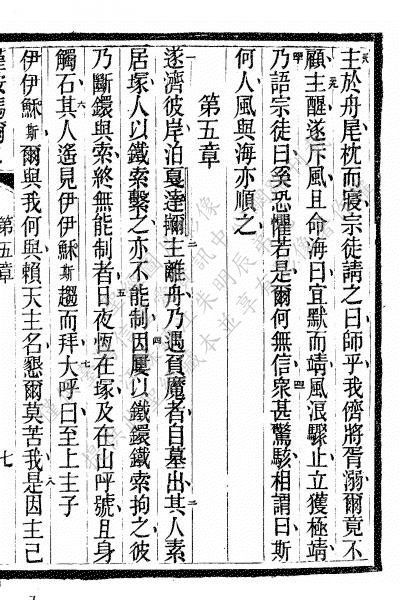 主於舟尾枕而寢宗徒請之曰師乎我儕將胥溺爾竟不
顧主醒遂斥風且命海曰宜默而靖風浪驟止立獲極靖
乃語宗徒曰奚恐懼若是爾何無信衆甚驚駭相謂曰斯
何人風與海亦順之
第五章
遂濟彼岸泊戛達爾主離舟乃遇負魔者自墓出其人素
居塚人以鐵索繫之亦不能制因屢以鐵鐶鐵索拘之彼
乃斷鐶與索終無能制者日夜恆在塚及在山呼號且身
觸石其人遙見伊伊穌斯趨而拜大呼曰至上主子
伊伊穌斯爾與我何與賴天主名懇爾莫苦我是因主已
第五章
七